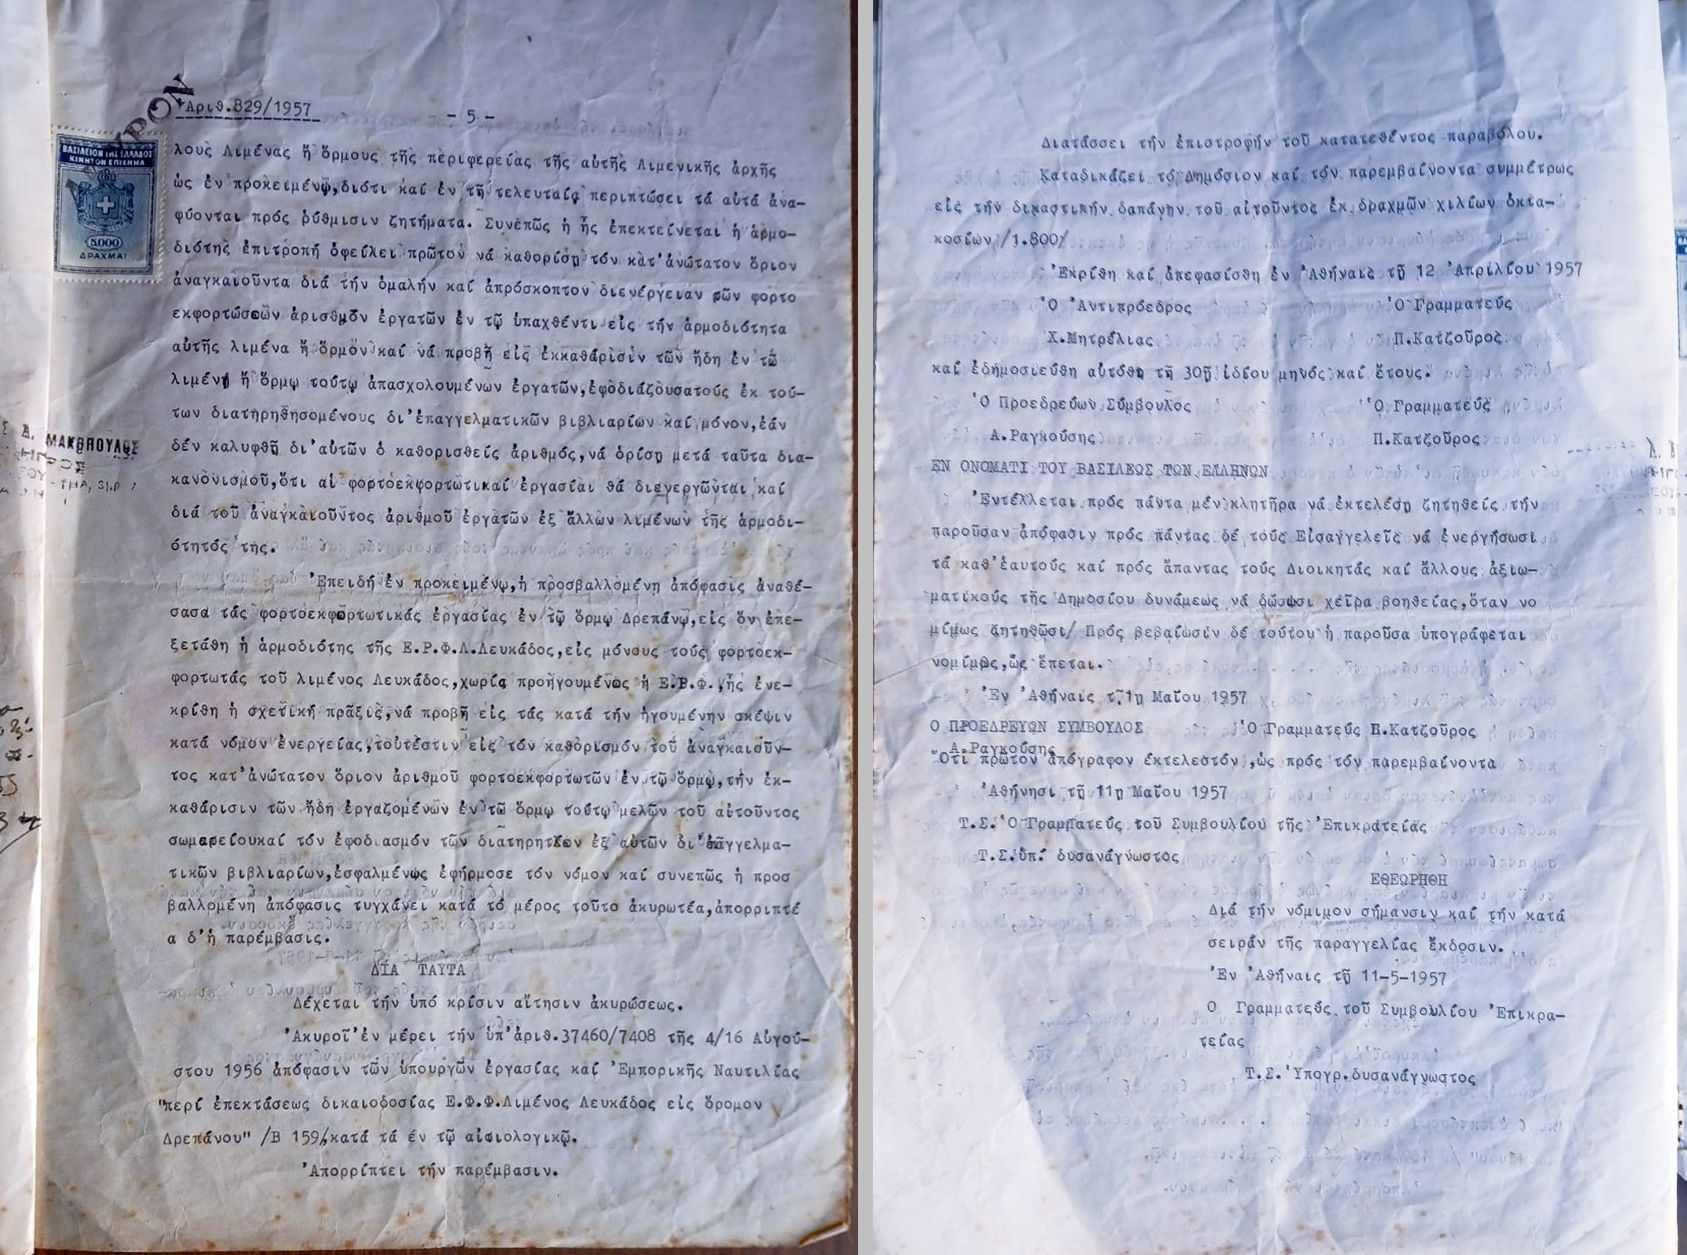 Ἀριθ.829/1957
- 5 -
ΒΑΣΙΛΕΙΟΝ ΤΗΣ ΕΛΛΑΔΟΣ
ΚΙΝΗΤΟΝ ΕΠΙΣΗΜΑ
5.000
ΔΡΑΧΜΑΙ
λους Λιμένας ἤ ὅρμους τῆς περιφερείας τῆς αὐτῆς Λιμενικῆς ἀρχῆς
ὡς ἐν προκειμένῳ,διότι καί ἐν τῇ τελευταίᾳ περιπτώσει τά αὐτά ἀνα-
φύονται πρός ῥύθμισιν ζητήματα. Συνεπῶς ἡ ἧς ἐπεκτείνεται ἡ ἁρμο-
διότης ἐπιτροπή ὀφείλει πρῶτον νά καθορίσῃ τόν κατ'ἀνώτατον ὅριον
ἀναγκαιοῦντα διά τήν ὁμαλήν καί ἀπρόσκοπτον διενέργειαν ῶῶν φορτο
εκφορτώσεῶν ἀρισθμῦν ἐργατῶν ἐν τῷ ὑπαχθέντι εἰς τήν ἁρμοδιότητα
αὐτῆς λιμένα ἤ ὅρμον καί νά προβῆ εἰς ἐκκαθάρισιν τῶν ἤδη ἐν τῶ
λιμένι ἤ ὅρμῳ τούτῳ ἀπασχολουμένων ἐργατῶν,ἐφοδιάζουσατούς ἐκ τού-
των διατηρηθησομένους δι'ἐπαγγελματικῶν βιβλιαρίων καί μόνον,ἐάν
δέν καλυφθῇ δι'αὐτῶν ὁ καθορισθείς ἀριθμός,νά ὁρίσῃ μετά ταῦτα δια-
κανονισμοῦ,ὅτι αἱ φορτοεκφορτωτικαί ἐργασίαι θά διενεργῶνται καί
διά τοῦ ἀναγκαιοῦντος ἀριθμοῦ ἐργατῶν ἐξ ἄλλων λιμένων τῆς ἁρμοδι-
ότητός της.
Ἐπειδή ἐν προκειμένῳ,ἡ προσβαλλομένη ἀπόφασις ἀναθέ-
σασα τάς φορτοεκφορτωτικάς ἐργασίας ἐν τῷ ὅρμῳ Δρεπάνῳ,εἰς ὅν ἐπε-
ξετάθη ἡ ἁρμοδιότης τῆς Ε.Ρ.Φ.Λ.Λευκάδος,εἰς μόνους τούς φορτοεκ-
φορτωτάς τοῦ λιμένος Λευκάδος,χωρίς προηγουμένως ἡ Ε.Ρ.Φ.,ἧς ἐνε-
κρίθη ἡ σχετική πρᾶξις,νά προβῇ εἰς τάς κατά τήν ἡγουμένην σκέψιν
κατά νόμον ἐνεργείας,τοὐτέστιν εἰς τόν καθορισμόν τοῦ ἀναγκαιοῦν-
τος κατ'ἀνώτατον ὅριον ἀριθμοῦ φορτοεκφορτωτῶν ἐν τῷ ὅρμῳ,τήν ἐκ-
καθάρισιν τῶν ἤδη ἐργαζομένων ἐν τῶ ὅρμῳ τούτῳ μελῶν τοῦ αἰτοῦντος
σωματείουκαί τόν ἐφοδιασμόν τῶν διατηρητέων ἐξ αὐτῶν δι'ἐπαγγελμα-
τικῶν βιβλιαρίων,ἐσφαλμένως ἐφήρμοσε τόν νόμον καί συνεπῶς ἡ προσ
βαλλομένη ἀπόφασις τυγχάνει κατά τό μέρος τοῦτο ἀκυρωτέα,ἀπορριπτέ
α δ'ἡ παρέμβασις.
ΔΙΑ ΤΑΥΤΑ
Δέχεται τήν ὑπό κρίσιν αἴτησιν ἀκυρώσεως.
Ἀκυροῖ ἐν μέρει τήν ὑπ'ἀριθ.37460/7408 τῆς 4/16 Αὐγού-
στου 1956 ἀπόφασιν τῶν ὑπουργῶν ἐργασίας καί Ἐμπορικῆς Ναυτιλίας
"περί ἐπεκτάσεως δικαιοδοσίας Ε.Φ.Φ.Λιμένος Λευκάδος εἰς ὅρομον
Δρεπάνου" /Β 159/κατά τά ἐν τῷ αἰσιολογικῷ.
Ἀπορρίπτει τήν παρέμβασιν.
Διατάσσει τήν ἐπιστροφήν τοῦ κατατεθέντος παραβόλου.
Καταδικάζει τό Δημόσιον καί τόν παρεμβαίνοντα συμμέτρως
εἰς τήν δικαστικήν δαπάνην τοῦ αἰτοῦντος ἐκ δραχμῶν χιλίων ὀκτα-
κοσίων /1.800/
Ἐκρίθη καί ἀπεφασίσθη ἐν Ἀθήναις τῇ 12 Ἀπριλίου 1957
Ὁ Ἀντιπρόεδρος Ὁ Γραμματεύς
Χ.Μητρέλιας Π.Κατζοῦρος
καί ἐδημοσιεύθη αὐτόθι τῇ 30ῇ ἰδίου μηνός καί ἔτους.
Ὁ Προεδρεύων Σύμβουλος Ὁ Γραμματεύς
Α.Ραγκούσης Π.Κατζοῦρος
ΕΝ ΟΝΟΜΑΤΙ ΤΟΥ ΒΑΣΙΛΕΩΣ ΤΩΝ ΕΛΛΗΝΩΝ
Ἐντέλλεται πρός πάντα μέν κλητῆρα νά ἐκτελέσῃ ζητηθείς τήν
παροῦσαν ἀπόφασιν πρός πάντας δέ τούς Εἰσαγγελεῖς νά ἐνεργήσωσι
τά καθ'ἑαυτούς καί πρός ἅπαντας τούς Διοικητάς καί ἄλλους ἀξιω-
ματικούς τῆς Δημοσίου δυνάμεως νά δώσωσι χεῖρα βοηθείας,ὅταν νο
μίμως ζητηθῶσι/ Πρός βεβαίωσιν δέ τούτου ἡ παροῦσα ὑπογράφεται
νομίμως,ὡς ἕπεται.
Ἐν Ἀθήναις τῇ 1ῃ Μαΐου 1957
Ο ΠΡΟΕΔΡΕΥΩΝ ΣΥΜΒΟΥΛΟΣ Ὁ Γραμματεύς Π.Κατζοῦρος
Α.Ραγκούσης
Ὅτι πρῶτον ἀπόγραφον ἐκτελεστόν,ὡς πρός τόν παρεμβαίνοντα
Ἀθήνησι τῇ 11ῃ Μαΐου 1957
Τ.Σ. Ὁ Γραμματεύς τοῦ Συμβουλίου τῆς Ἐπικρατείας
Τ.Σ.ὑπ. δυσανάγνωστος
ΕΘΕΩΡΗΘΗ
Διά τήν νόμιμον σήμανσιν καί τήν κατά
σειράν τῆς παραγγελίας ἔκδοσιν.
Ἐν Ἀθήναις τῇ 11-5-1957
Ο Γραμματεύς τοῦ Συμβουλίου Ἐπικρα-
τείας
Τ.Σ.Ὑπογρ.δυσανάγνωστος